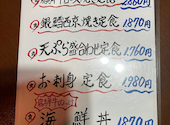 定食 1860円
銀鱈西京焼き定食 1870円
天ぷら盛合わせ定食 1760円
お刺身定食 1980円
海鮮丼 1870円